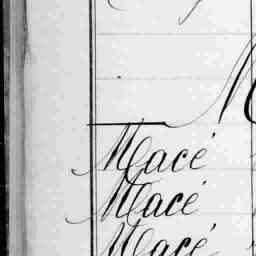 M
Macé
Macé
Macé